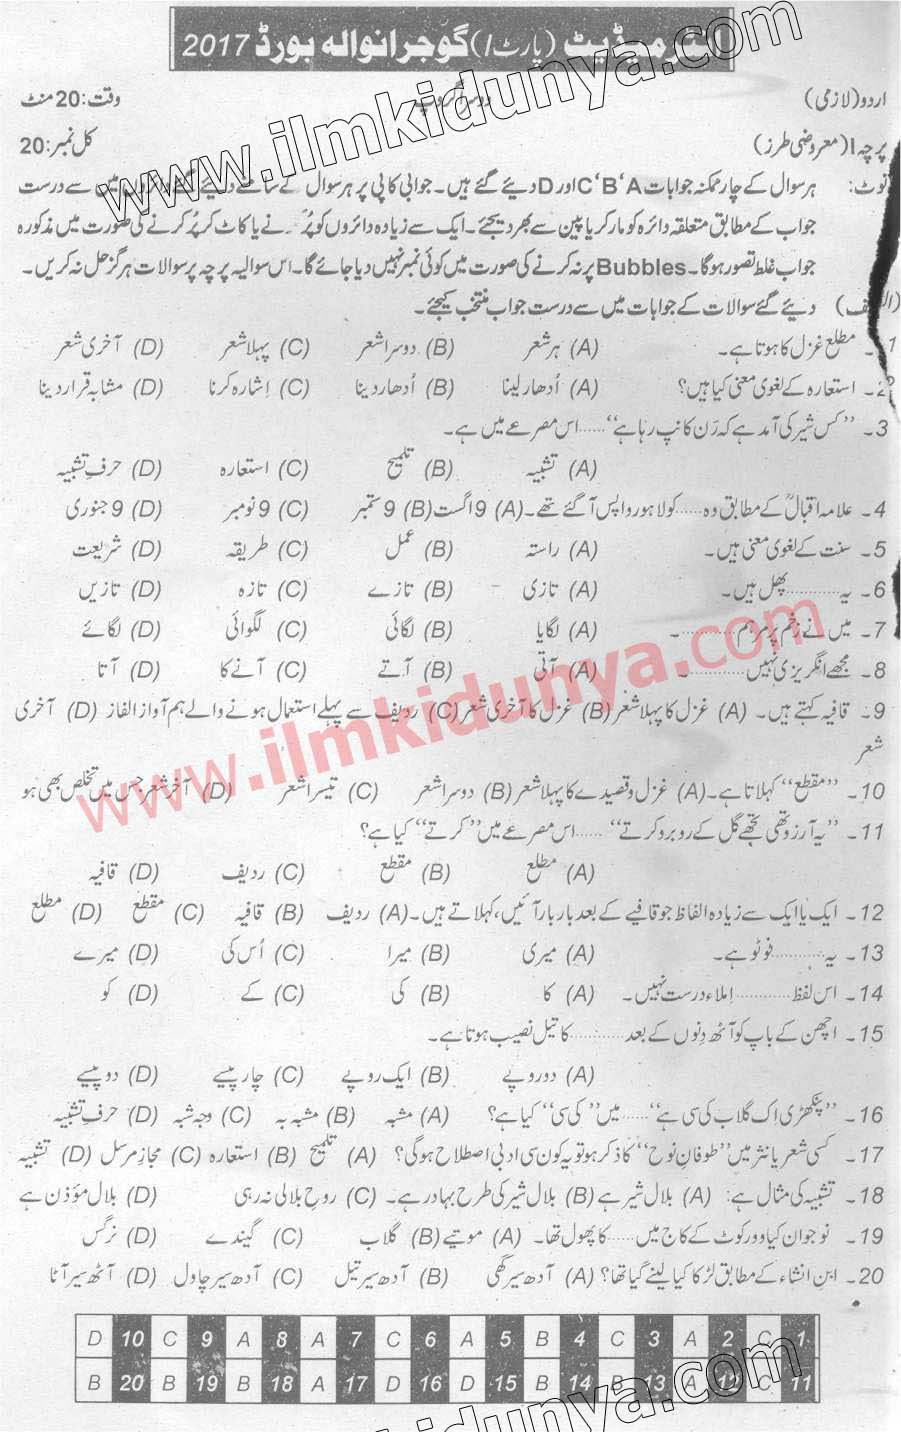 انٹرمیڈیٹ (پارٹ I) گوجرانوالہ بورڈ 2017
اردو (لازمی) دوسرا گروپ وقت: 20 منٹ
پرچہ I (معروضی طرز) کل نمبر: 20
نوٹ: ہر سوال کے چار ممکنہ جوابات A‘ B‘ C اور D دیئے گئے ہیں۔ جوابی کاپی پر ہر سوال کے سامنے دیئے گئے دائروں میں سے درست
جواب کے مطابق متعلقہ دائرہ کو مارکر یا پین سے بھر دیجئے۔ ایک سے زیادہ دائروں کو پُر کرنے یا کاٹ کر پُر کرنے کی صورت میں مذکورہ
جواب غلط تصور ہوگا۔ Bubbles پر نہ کرنے کی صورت میں کوئی نمبر نہیں دیا جائے گا۔ اس سوالیہ پرچہ پر سوالات ہرگز حل نہ کریں۔
(الف) دیئے گئے سوالات کے جوابات میں سے درست جواب منتخب کیجئے۔
1۔ مطلع غزل کا ہوتا ہے۔ (A) ہر شعر (B) دوسرا شعر (C) پہلا شعر (D) آخری شعر
2۔ استعارہ کے لغوی معنی کیا ہیں؟ (A) اُدھار لینا (B) اُدھار دینا (C) اِشارہ کرنا (D) مشابہ قرار دینا
3۔ ’’کس شیر کی آمد ہے کہ رَن کانپ رہا ہے‘‘...... اس مصرعے میں ہے۔
(A) تشبیہ (B) تلمیح (C) استعارہ (D) حرفِ تشبیہ
4۔ علامہ اقبالؒ کے مطابق وہ ...... کو لاہور واپس آ گئے تھے۔ (A) 9 اگست (B) 9 ستمبر (C) 9 نومبر (D) 9 جنوری
5۔ سنت کے لغوی معنی ہیں۔ (A) راستہ (B) عمل (C) طریقہ (D) شریعت
6۔ یہ .......... پھل ہیں۔ (A) تازی (B) تازے (C) تازہ (D) تازیں
7۔ میں نے زخم پر مرہم .......... ۔ (A) لگایا (B) لگائی (C) لگوائی (D) لگائے
8۔ مجھے انگریزی نہیں .......... ۔ (A) آتی (B) آتے (C) آنے کا (D) آتا
9۔ قافیہ کہتے ہیں۔ (A) غزل کا پہلا شعر (B) غزل کا آخری شعر (C) ردیف سے پہلے استعمال ہونے والے ہم آواز الفاز (D) آخری
شعر
10۔ ’’مقطع‘‘ کہلاتا ہے۔ (A) غزل و قصیدے کا پہلا شعر (B) دوسرا شعر (C) تیسرا شعر (D) آخر شعر جس میں تخلص بھی ہو
11۔ ’’یہ آرزو تھی تجھے گل کے روبرو کرتے‘‘ ...... اس مصرعے میں ’’کرتے‘‘ کیا ہے؟
(A) مطلع (B) مقطع (C) ردیف (D) قافیہ
12۔ ایک یا ایک سے زیادہ الفاظ جو قافیے کے بعد بار بار آئیں، کہلاتے ہیں۔ (A) ردیف (B) قافیہ (C) مقطع (D) مطلع
13۔ یہ .......... فوٹو ہے۔ (A) میری (B) میرا (C) اُس کی (D) میرے
14۔ اس لفظ .......... اِملاء درست نہیں۔ (A) کا (B) کی (C) کے (D) کو
15۔ اچھن کے باپ کو آٹھ دِنوں کے بعد .......... کا تیل نصیب ہوتا ہے۔
(A) دو روپے (B) ایک روپے (C) چار پیسے (D) دو پیسے
16۔ ’’پنکھڑی اِک گلاب کی سی ہے‘‘...... میں ’’کی سی‘‘ کیا ہے؟ (A) مشبہ (B) مشبہ بہ (C) وجہ شبہ (D) حرفِ تشبیہ
17۔ کسی شعر یا نثر میں ’’طوفانِ نوح‘‘ کا ذکر ہو تو یہ کون سی ادبی اصطلاح ہوگی؟ (A) تلمیح (B) استعارہ (C) مجاز مرسل (D) تشبیہ
18۔ تشبیہ کی مثال ہے: (A) بلال شیر ہے (B) بلال شیر کی طرح بہادر ہے۔ (C) روحِ بلالی نہ رہی (D) بلال مؤذن ہے
19۔ نوجوان کیا وور کوٹ کے کاج میں ...... کا پھول تھا۔ (A) موتیے (B) گلاب (C) گیندے (D) نرگس
20۔ ابنِ انشاء کے مطابق لڑکا کیا لینے گیا تھا؟ (A) آدھ سیر گھی (B) آدھ سیر تیل (C) آدھ سیر چاول (D) آٹھ سیر آٹا
D 10 C 9 A 8 A 7 C 6 A 5 B 4 C 3 A 2 C 1
B 20 B 19 B 18 A 17 D 16 D 15 B 14 B 13 A 12 C 11
www.ilmkidunya.com
www.ilmkidunya.com
www.ilmkidunya.com